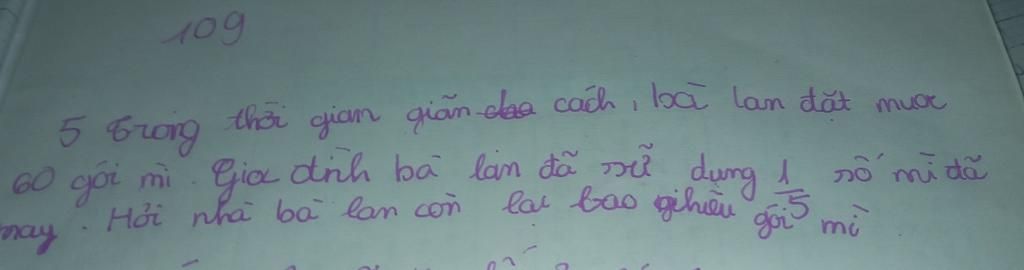 109
5 Trong thời gian giãn cách, bà lan đặt mua
60 gói mì. Gia đình bà lan đã sử dụng 1/5 số mì đã
may. Hỏi nhà bà lan còn lại bao nhiêu gói mì